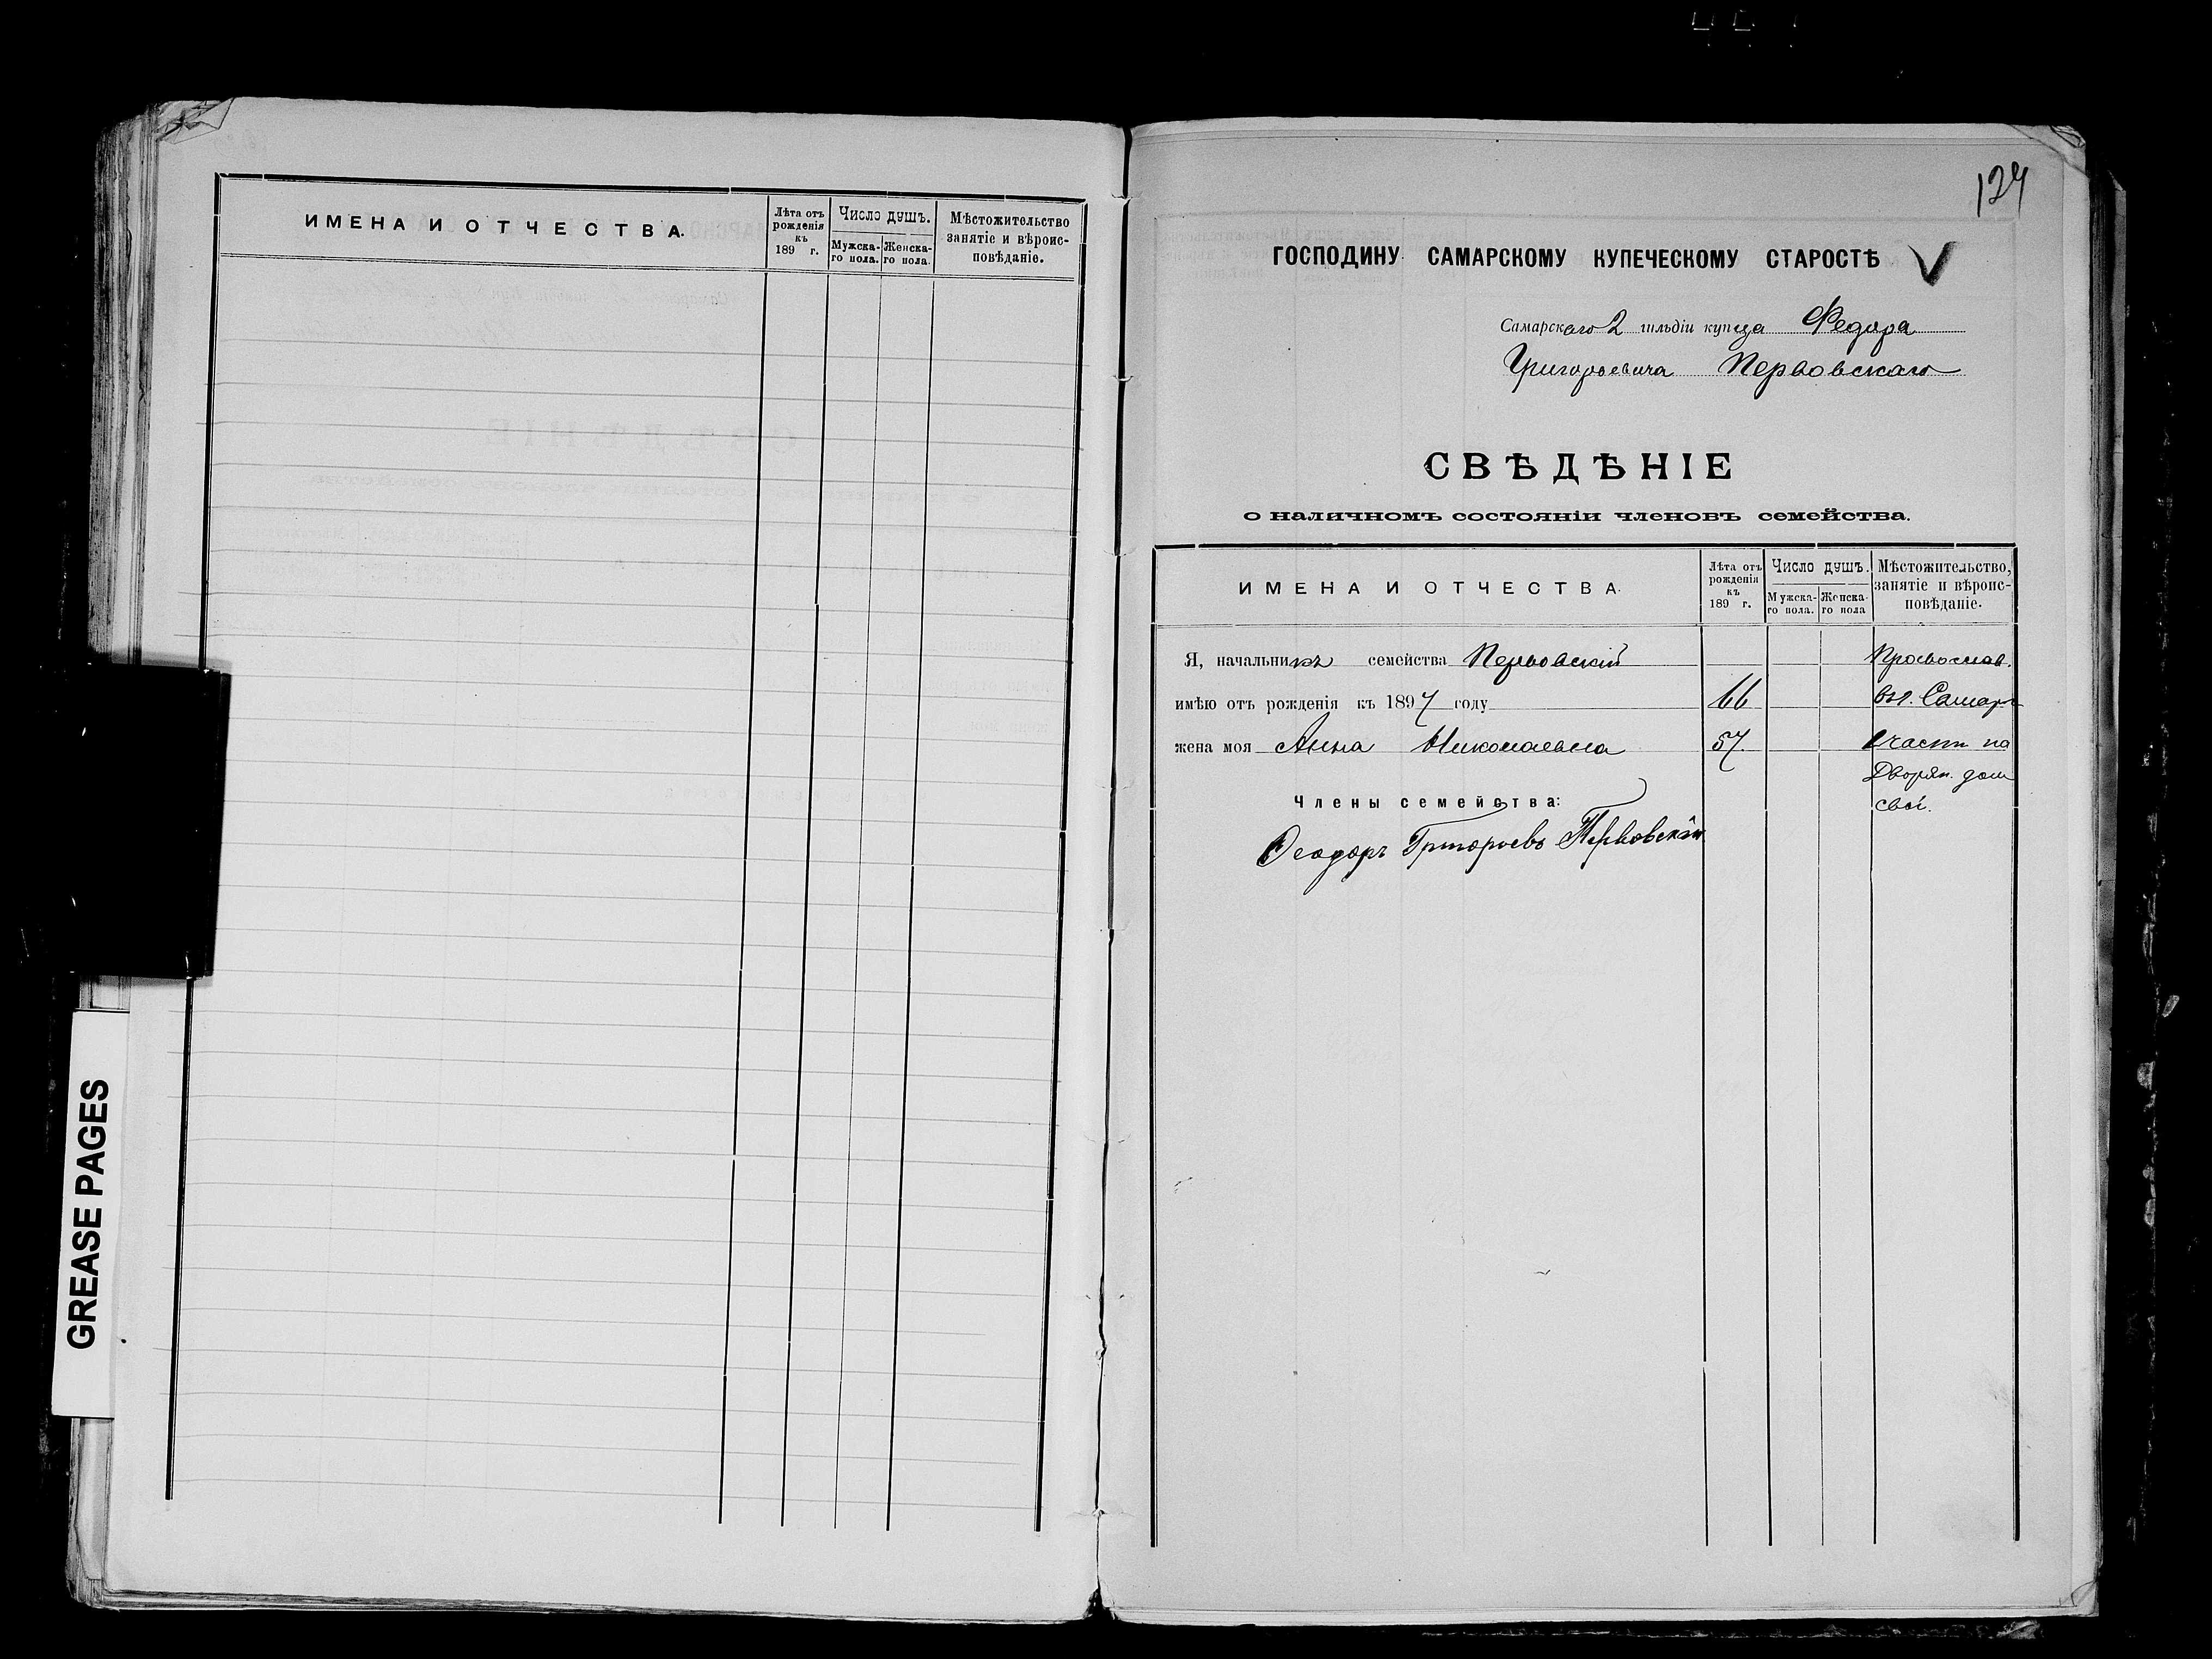 ИМЕНА И ОТЧЕСТВА.
Лѣта отъ рожденія къ 189 г.
Число душъ.
Мужска-го пола.
Женска-го пола.
Мѣстожительство
занятіе и вѣроис-
повѣданіе.
GREASE PAGES
127
ГОСПОДИНУ САМАРСКОМУ КУПЕЧЕСКОМУ СТАРОСТѢ
Самарскаго 2 гильдіи купца Федора
Григорьевича Перровскаго
СВѢДѢНІЕ
о наличномъ состояніи членовъ семейства.
ИМЕНА И ОТЧЕСТВА.
Лѣта отъ рожденія къ 189 г.
Число душъ.
Мужска-го пола.
Женска-го пола
Мѣстожительство,
занятіе и вѣроис-
повѣданіе.
Я, начальникъ семейства Перровскій Провослав.
имѣю отъ рожденія къ 1897 году 66 въ г. Самар
жена моя Анна Николаевна 57 части на
Дворян. дом
Члены семейства: свой.
Феодоръ Григорьевъ Перровскій